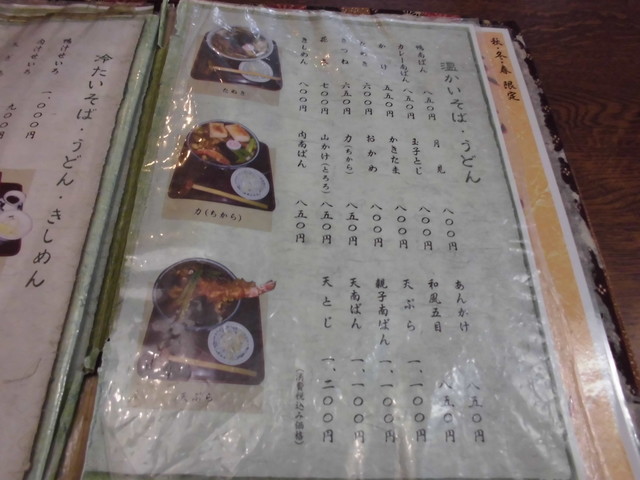 秋・冬・春 限定
温かいそば・うどん
鴨南ばん 八五〇円
カレー南ばん 八五〇円
かけ 五五〇円
たぬき 六〇〇円
きつね 六五〇円
七〇〇円
きしめん 八〇〇円
月見 八〇〇円
玉子とじ 八〇〇円
かきたま 八〇〇円
おかめ 八〇〇円
力(ちから) 八五〇円
山かけ(とろろ) 八五〇円
肉南ばん 八五〇円
あんかけ 八五〇円
和風五目 八五〇円
天ぷら 一、一〇〇円
親子南ばん 一、一〇〇円
天南ばん 一、一〇〇円
天とじ 一、二〇〇円
(消費税込み価格)
たぬき
力(ちから)
天ぷら
冷たいそば・うどん・きしめん
せいろ 一、〇〇〇円
せいろ 九〇〇円